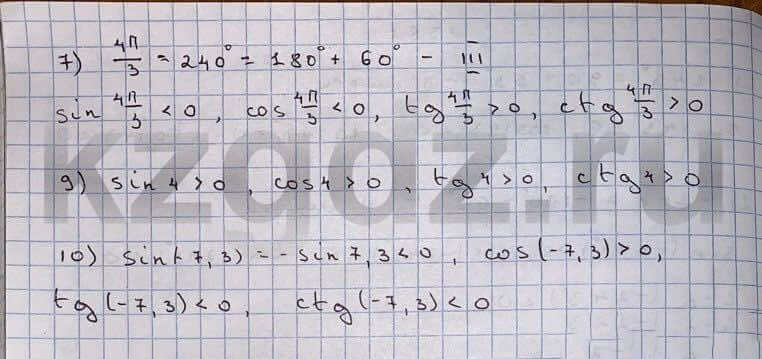 7) 4π/3 = 240° = 180° + 60° - III
sin 4π/3 < 0, cos 4π/3 < 0, tg 4π/3 > 0, ctg 4π/3 > 0
9) sin 4 > 0, cos 4 > 0, tg 4 > 0, ctg 4 > 0
kzgdz.ru
10) sin(-7,3) = - sin 7,3 < 0, cos(-7,3) > 0,
tg(-7,3) < 0, ctg(-7,3) < 0